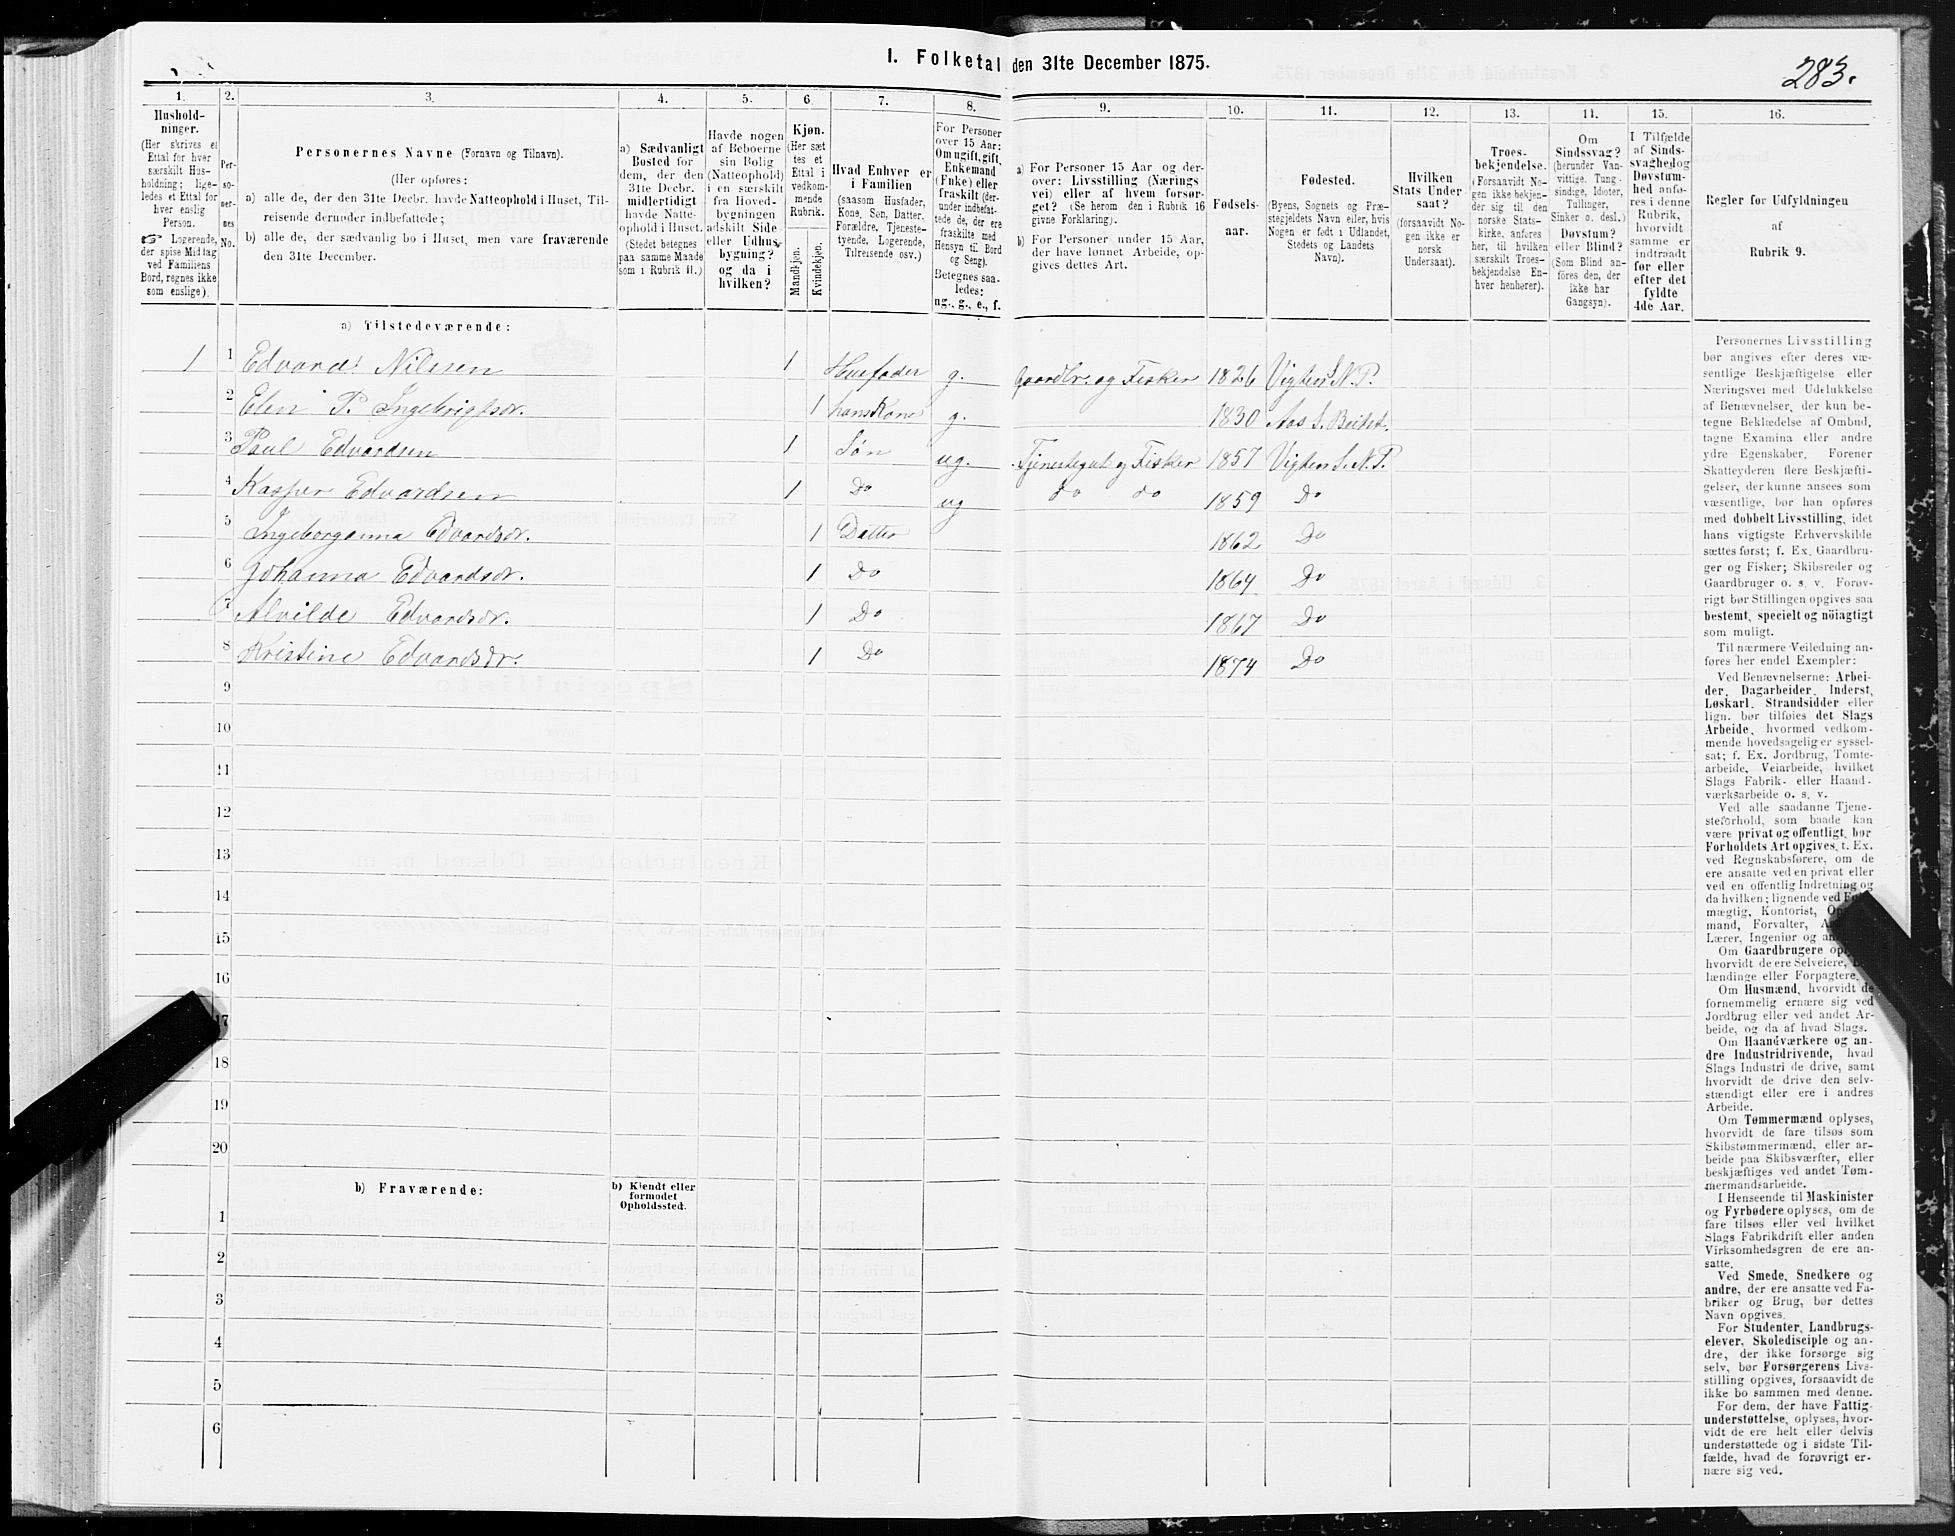 I. Folketal den 31te December 1875.
283.
1. 2. 3. 4. 5. 6. 7. 8. 9. 10. 11. 12. 13. 14. 15. 16.
Hushold-
ninger.
(Her skrives et
Ettal for hver
særskilt Hus-
holdning; lige-
ledes et Ettal for
hver enslig
Person.
☞ Logerende,
der spise Middag
ved Familiens
Bord, regnes ikke
som enslige).
Per-
so-
ner-
nes
No.
Personernes Navne (Fornavn og Tilnavn).
(Her opføres:
a) alle de, der den 31te Decbr. havde Natteophold i Huset, Til-
reisende derunder indbefattede;
b) alle de, der sædvanlig bo i Huset, men vare fraværende
den 31te December.
a) Sædvanligt
Bosted for
dem, der den
31te Decbr.
midlertidigt
havde Natte-
ophold i Huset.
(Stedet betegnes
paa samme Maade
som i Rubrik 11.)
Havde nogen
af Beboerne
sin Bolig
(Natteophold)
i en særskilt
fra Hoved-
bygningen
adskilt Side-
eller Udhus-
bygning?
og da i
hvilken?
Kjøn.
(Her sæt-
tes et
Ettal i
vedkom-
mende
Rubrik.
Mandkjøn.
Kvindekjøn.
Hvad Enhver er
i Familien
(saasom Husfader,
Kone, Søn, Datter,
Forældre, Tjeneste-
tyende, Logerende,
Tilreisende osv.)
For Personer
over 15 Aar:
Om ugift, gift,
Enkemand
(Enke) eller
fraskilt (der-
under indbefat-
tede de, der ere
fraskilte med
Hensyn til Bord
og Seng).
Betegnes saa-
ledes:
ug., g., e., f.
a) For Personer 15 Aar og der-
over: Livsstilling (Nærings-
vei) eller af hvem forsør-
get? (Se herom den i Rubrik 16
givne Forklaring).
b) For Personer under 15 Aar,
der have lønnet Arbeide, op-
gives dettes Art.
Fødsels-
aar.
Fødested.
(Byens, Sognets og Præ-
stegjeldets Navn eller, hvis
Nogen er født i Udlandet,
Stedets og Landets
Navn).
Hvilken
Stats Under-
saat?
(forsaavidt No-
gen ikke er
norsk
Undersaat).
Troes-
bekjendelse.
(Forsaavidt No-
gen ikke bekjen-
der sig til den
norske Stats-
kirke, anføres
her, til hvilken
særskilt Troes-
bekjendelse En-
hver henhører).
Om
Sindssvag?
(herunder Van-
vittige, Tung-
sindige, Idioter,
Tullinger,
Sinker o. desl.)
Døvstum?
eller Blind?
(Som Blind an-
føres den, der
ikke har
Gangsyn).
I Tilfælde
af Sinds-
svaghed og
Døvstum-
hed anfø-
res i denne
Rubrik,
hvorvidt
samme er
indtraadt
før eller
efter det
fyldte
4de Aar.
Regler for Udfyldningen
af
Rubrik 9.
a) Tilstedeværende:
1 1 Edvard Nilssen 1 Husfader g. Gaardbr. og Fisker 1826 Vigten S. N. P.
2 Elen P. Ingebrigtsdr. 1 hans Kone g. 1830 Aas S. Beitst.
3 Paul Edvardsen 1 Søn ug. Tjenestegut og Fisker 1857 Vigten S. N. P.
4 Kasper Edvardsen 1 Do ug do do 1859 Do
5 Ingeborganna Edvardsdr. 1 Datter 1862 Do
6 Johanna Edvardsdr. 1 Do 1864 Do
7 Alvilde Edvardsdr. 1 Do 1867 Do
8 Kristine Edvardsdr. 1 Do 1874 Do
9
10
11
12
13
14
15
16
17
18
19
20
b) Fraværende:
b) Kjendt eller
formodet
Opholdssted.
1
2
3
4
5
6
Personernes Livsstilling
bør angives efter deres væ-
sentlige Beskjæftigelse eller
Næringsvei med Udelukkelse
af Benævnelser, der kun be-
tegne Beklædelse af Ombud,
tagne Examina eller andre
ydre Egenskaber. Forener
Skatteyderen flere Beskjæfti-
gelser, der kunne ansees som
væsentlige, bør han opføres
med dobbelt Livsstilling, idet
hans vigtigste Erhvervskilde
sættes først; f. Ex. Gaardbru-
ger og Fisker; Skibsreder og
Gaardbruger o. s. v. Forøv-
rigt bør Stillingen opgives saa
bestemt, specielt og nöiagtigt
som muligt.
Til nærmere Veiledning an-
føres her endel Exempler:
Ved Benævnelserne: Arbei-
der, Dagarbeider, Inderst,
Løskarl, Strandsidder eller
lign. bør tilføies det Slags
Arbeide, hvormed vedkom-
mende hovedsagelig er syssel-
sat; f. Ex. Jordbrug, Tomte-
arbeide, Veiarbeide, hvilket
Slags Fabrik- eller Haand-
værksarbeide o. s. v.
Ved alle saadanne Tjene-
steforhold, som baade kan
være privat og offentligt, bør
Forholdets Art opgives, t. Ex.
ved Regnskabsførere, om de
ere ansatte ved en privat eller
ved en offentlig Indretning og
da hvilken; lignende ved
mægtig, Kontorist,
mand, Forvalter,
Lærer, Ingeniør og
Om Gaardbrugere
hvorvidt de ere Selveiere,
lændinge eller Forpagtere.
Om Husmænd, hvorvidt de
fornemmelig ernære sig ved
Jordbrug eller ved andet Ar-
beide, og da af hvad Slags.
Om Haandværkere og an-
dre Industridrivende, hvad
Slags Industri de drive, samt
hvorvidt de drive den selv-
stændigt eller ere i andres
Arbeide.
Om Tømmermænd oplyses,
hvorvidt de fare tilsøs som
Skibstømmermænd, eller ar-
beide paa Skibsværfter, eller
beskjæftiges ved andet Tøm-
mermandsarbeide.
I Henseende til Maskinister
og Fyrbødere oplyses, om de
fare tilsøs eller ved hvilket
Slags Fabrikdrift eller anden
Virksomhedsgren de ere an-
satte.
Ved Smede, Snedkere og
andre, der ere ansatte ved Fa-
briker og Brug, bør dettes
Navn opgives.
For Studenter, Landbrugs-
elever, Skoledisciple og an-
dre, der ikke forsørge sig
selv, bør Forsørgerens Livs-
stilling opgives, forsaavidt de
ikke bo sammen med denne.
For dem, der have Fattig-
understøttelse, oplyses, hvor-
vidt de ere helt eller delvis
understøttede og i sidste Til-
fælde, hvad de forøvrigt er-
nære sig ved.